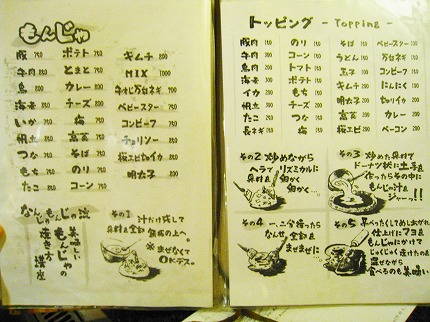 もんじゃ
豚 750
牛肉 750
鳥 750
海老 750
いか 750
帆立 750
つな 750
もち 750
たこ 750
ポテト 750
とまと 750
カレー 750
チーズ 750
梅 750
高菜 750
そば 750
のり 750
コーン 750
キムチ 800
MIX 1000
牛すじ万台ネギ
ベビースター
コンビーフ
チョリソー
桜エビ
明太子
なんもんじゃ流
美味しい
もんじゃの
焼き方
講座
その1
汁だけ残して
具材を全部
鉄板の上へ。
※まぜなくて
OKデス。
トッピング - Topping -
豚肉
牛肉
鳥肉
海老
イカ
帆立
たこ
長ネギ
のり
コーン
トマト
ポテト
もち
チーズ
つな
梅
そば
うどん
玉子
キムチ
明太子
カレー
高菜
桜エビ
ベビースター
万台ネギ
コンビーフ
にんにく
ベーコン
その2 炒めながら
ヘラでリズミカルに
具材を細かく
細かく…。
その3 炒めた具材で
ドーナツ状に土手を
作ったらその中に
もんじゃ汁を
ジャーッ!!
その4 一、二分待ったら
なんせ、全部を
まぜまぜに…。
その5 平べったくしてめしあがれ
仕上げにマヨを
もんじゃにかけて
じゅくじゅく焼けたのを
混ぜながら
食べるのも美味い